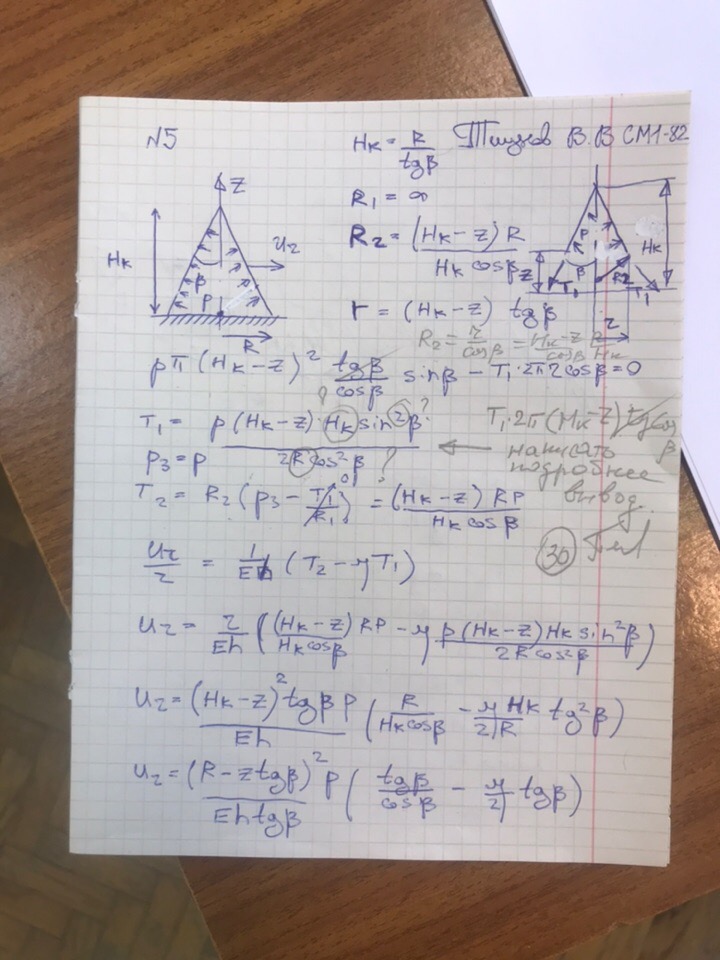 N5
Hк = R/tgβ
СМ1-82
R₁ = ∞
R₂ = (Hк-z) R / Hк cosβ
r = (Hк-z) tgβ
Z
Hк
Uz
β
P
R
P
β
Hк
z
R2
T₁
T₁
r
R₂ = r/cosβ = Hк-z/cosβ R/Hк
pπ (Hк-z)² tgβ/cosβ sinβ - T₁·2πr cosβ = 0
T₁ = p(Hк-z)·Hк sin²β / 2R cos²β ?
T₁·2π(Hк-z) tgβ cosβ
написать
подробнее
вывод
P₃ = P
T₂ = R₂ (p₃ - T₁/R₁) = (Hк-z) RP / Hк cosβ
30
Uz/r = 1/Eh (T₂ - μT₁)
Uz = r/Eh ((Hк-z) RP / Hк cosβ - μ p(Hк-z)Hк sin²β / 2R cos²β)
Uz = (Hк-z)² tgβ P / Eh (R / Hк cosβ - μ/2 Hк/R tg²β)
Uz = (R-z tgβ)² P / Eh tgβ (tgβ/cosβ - μ/2 tgβ)